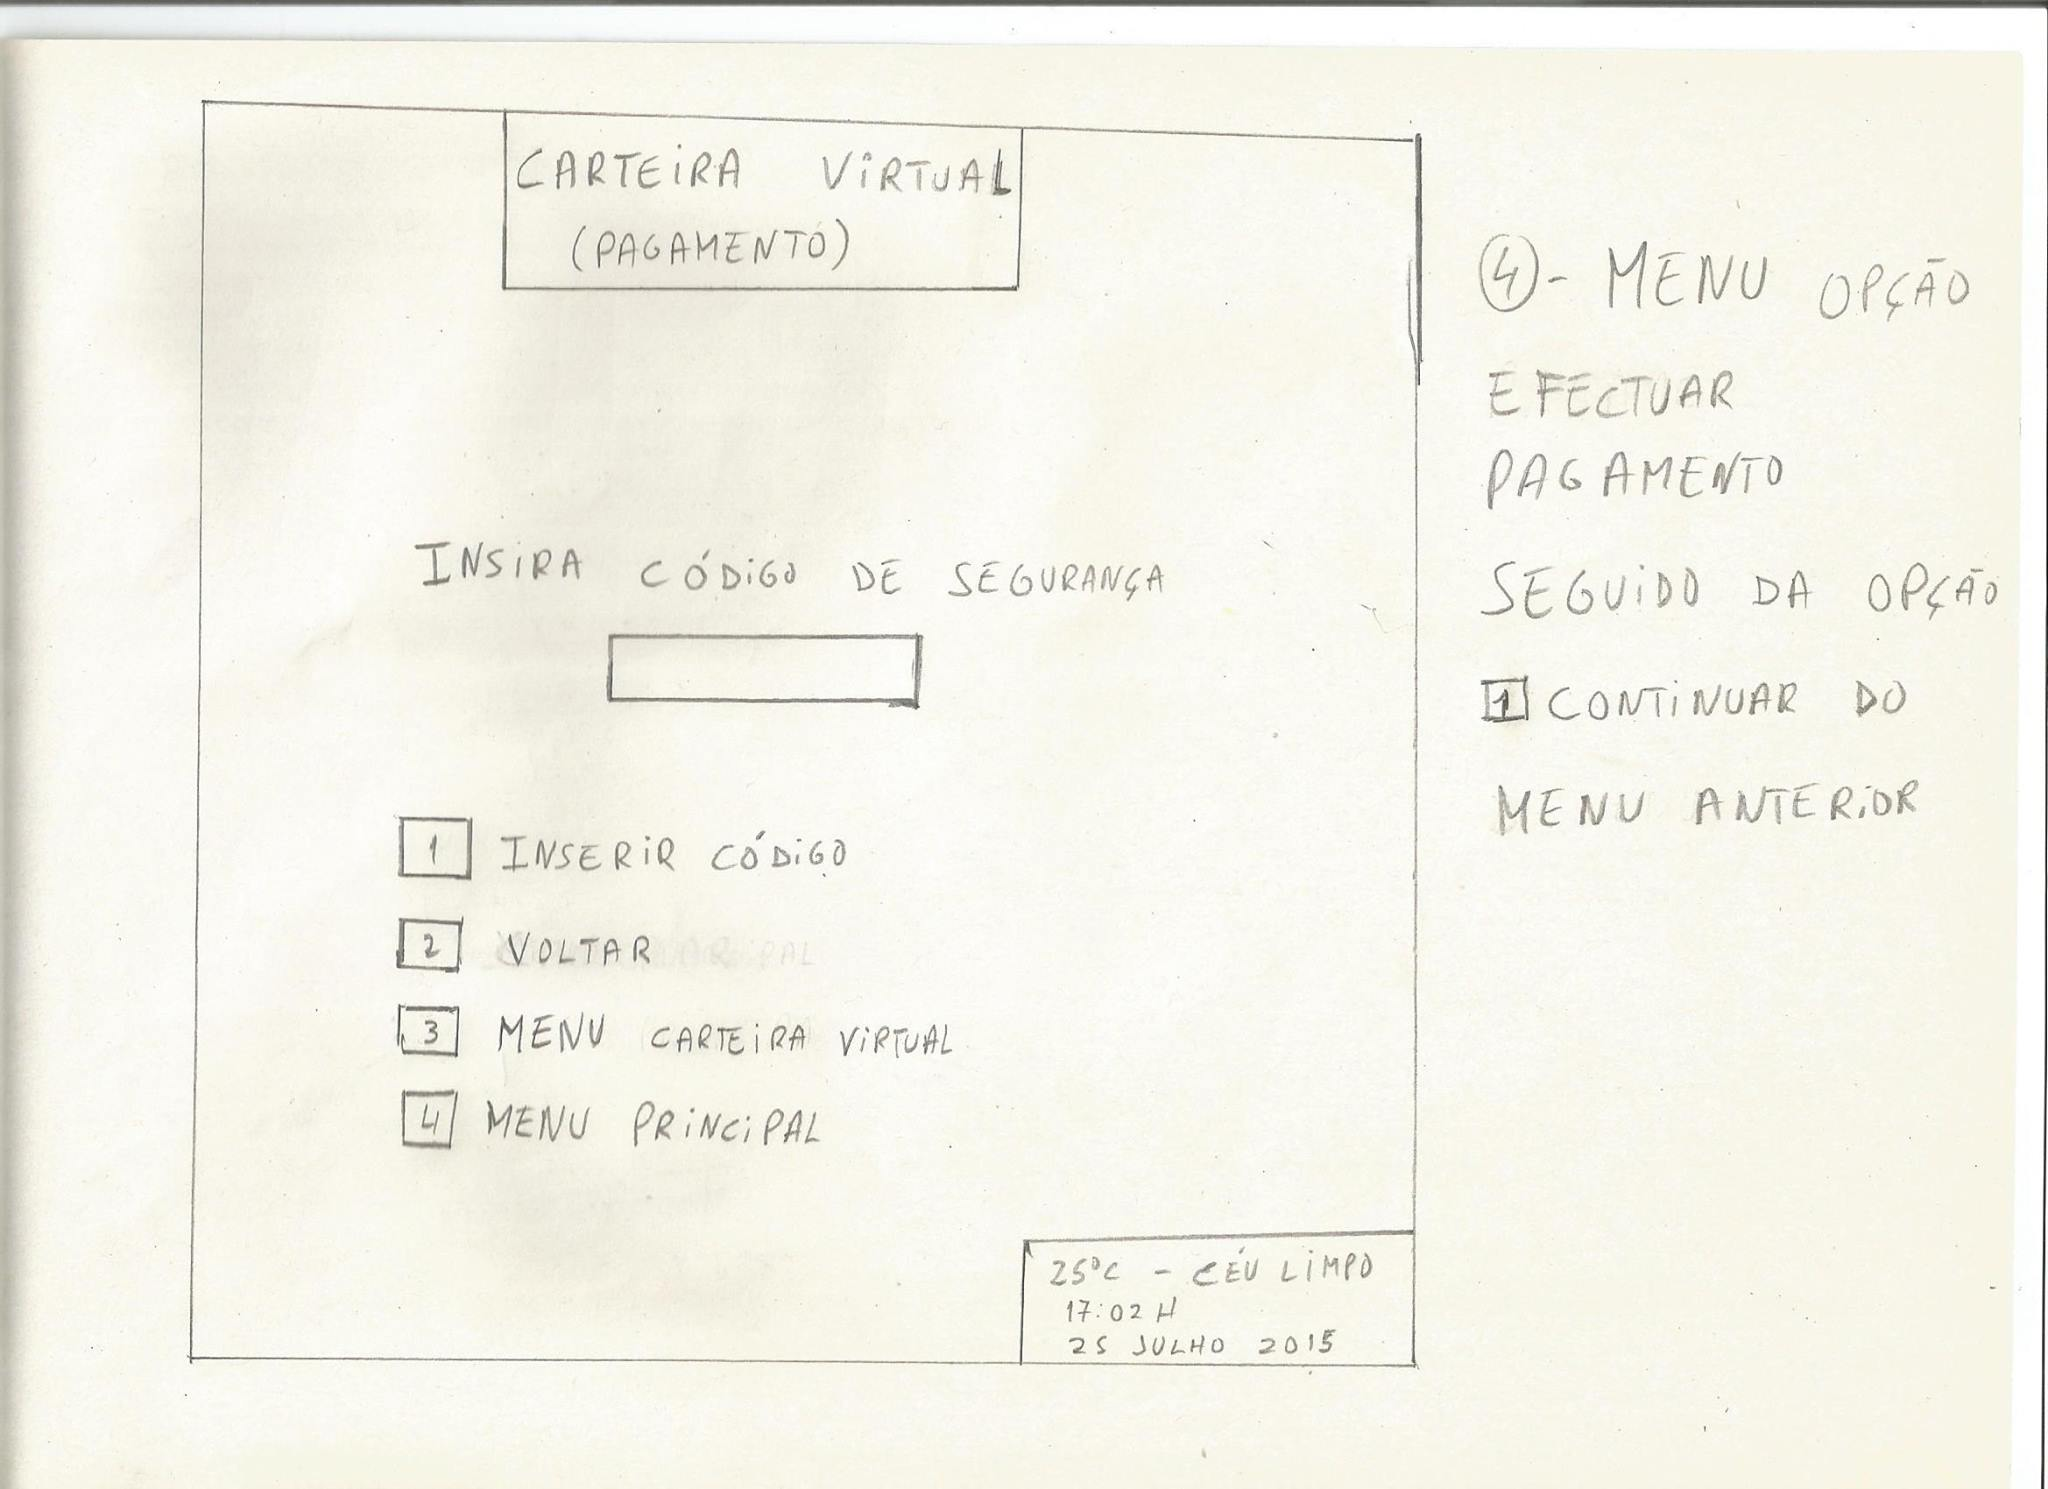 CARTEIRA VIRTUAL
(PAGAMENTO)
INSIRA CÓDIGO DE SEGURANÇA
1 INSERIR CÓDIGO
2 VOLTAR
3 MENU CARTEIRA VIRTUAL
4 MENU PRINCIPAL
25ºC - CÉU LIMPO
17:02 H
25 JULHO 2015
4 - MENU OPÇÃO
EFECTUAR
PAGAMENTO
SEGUIDO DA OPÇÃO
1 CONTINUAR DO
MENU ANTERIOR